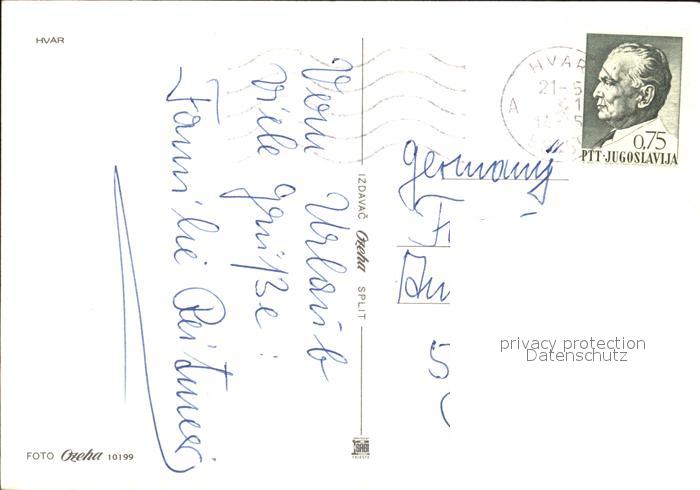 HVAR
Vom Urlaub
viele Grüße!
Familie
germany
IZDAVAČ Ozeha SPLIT
HVAR
21-5
A
0,75
PTT-JUGOSLAVIJA
privacy protection
Datenschutz
FOTO Ozeha 10199